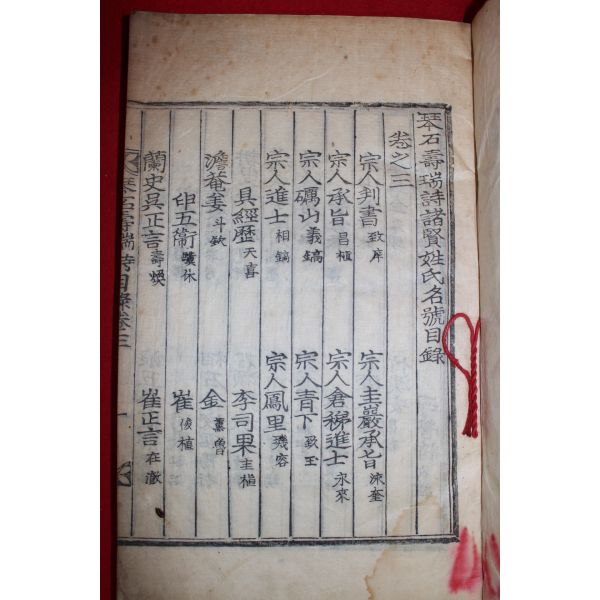 琴石壽瑞詩諸賢姓氏名號目錄
卷之三
宗人判書 致庠 宗人圭嚴承旨 洙奎
宗人承旨 昌植 宗人倉稊進士 永來
宗人礪山 義鎬 宗人青下 致玉
宗人進士 相鎬 宗人鳳里 璣容
具經歷 天喜 李司果 圭植
澹菴姜 斗欽 金 薰魯
印五衛 休 崔 俊植
蘭史吳正言 壽煥 崔正言 在澈
琴石壽瑞詩目錄卷三 一